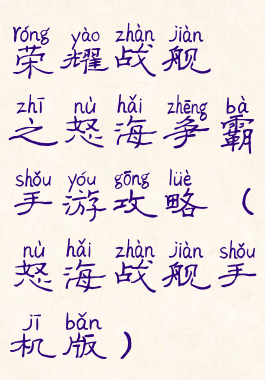 róng yào zhàn jiàn
荣耀战舰
zhī nù hǎi zhēng bà
之怒海争霸
shǒu yóu gōng lüè
手游攻略（
nù hǎi zhàn jiàn shǒu
怒海战舰手
jī bǎn
机版）